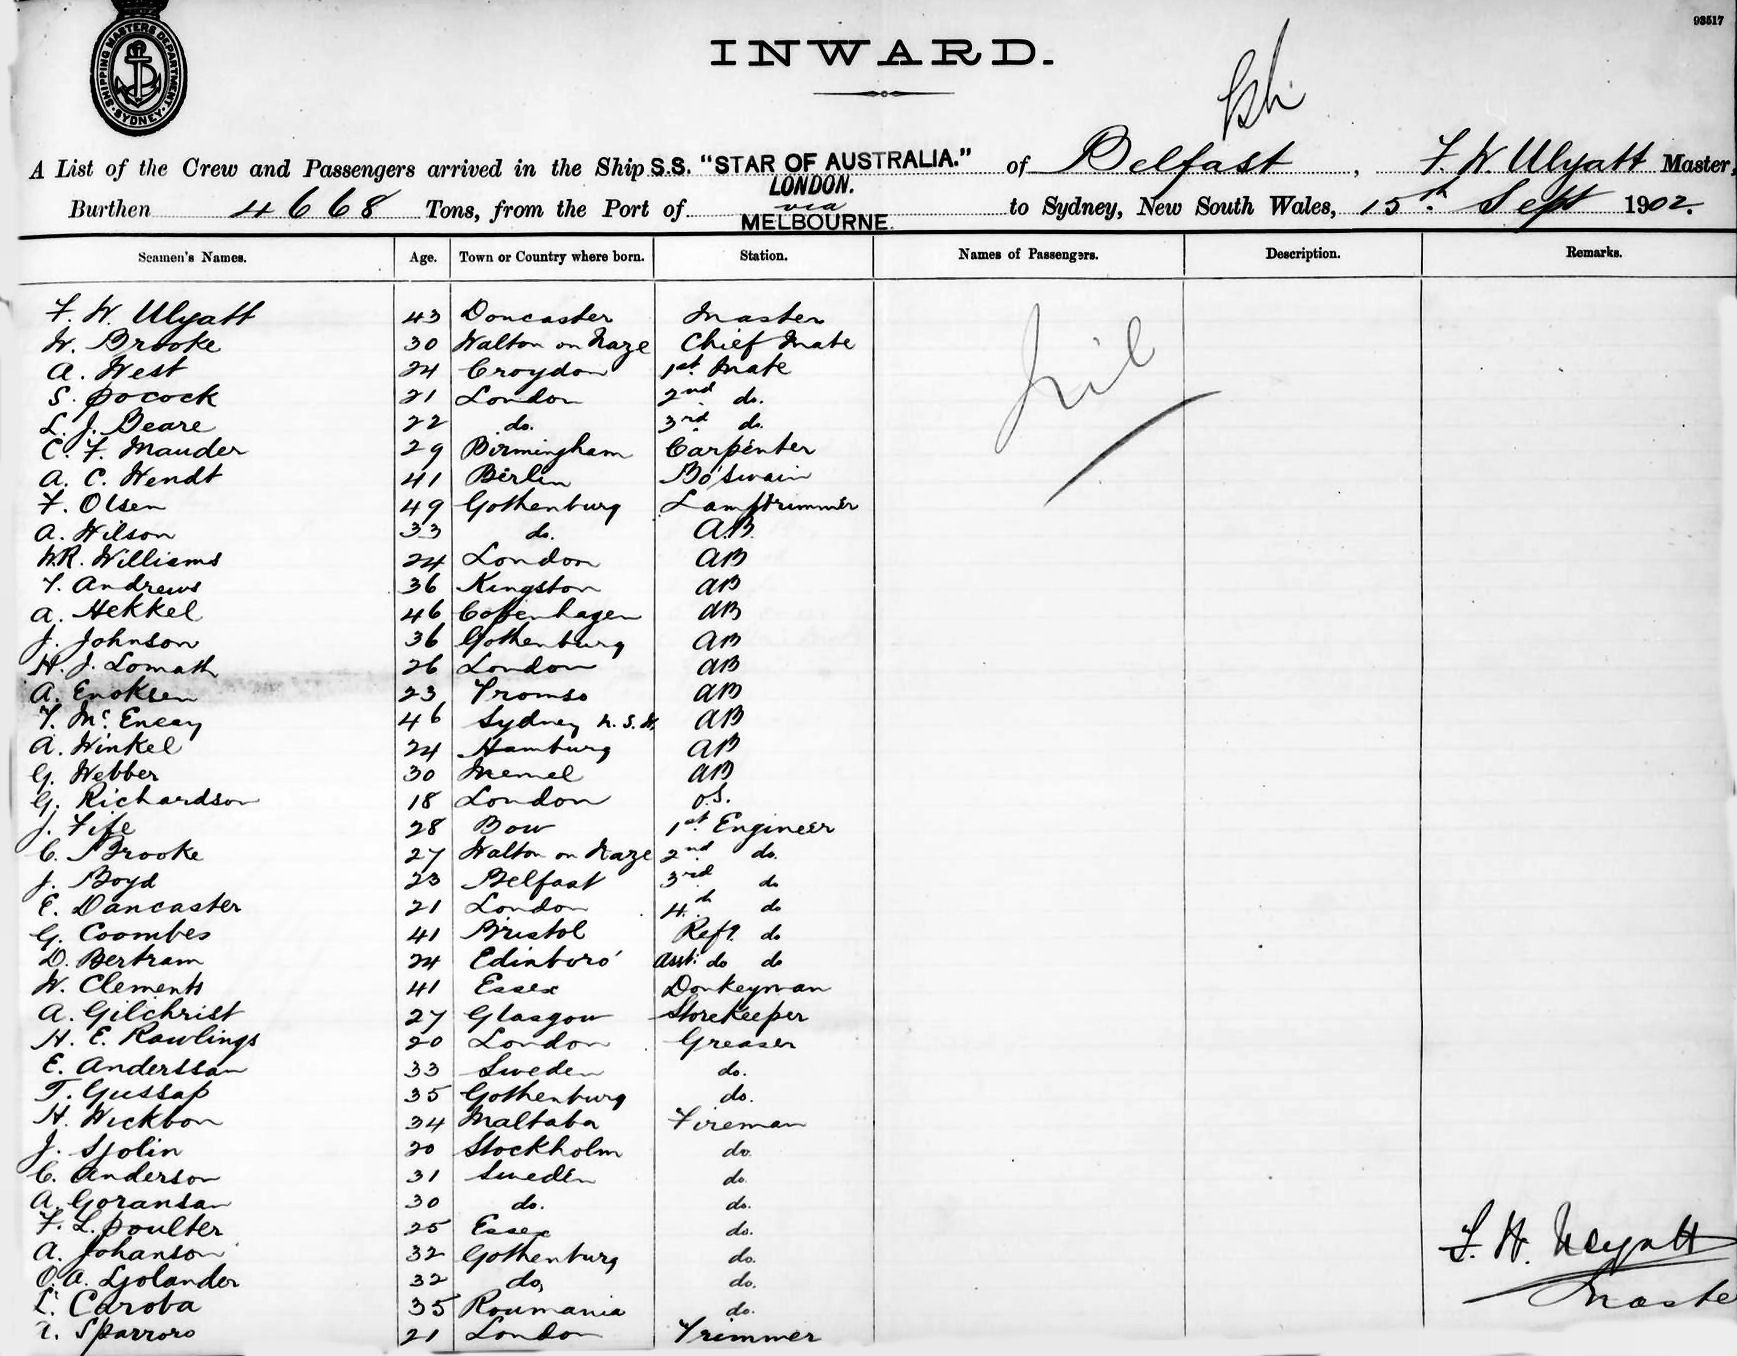 93517
SHIPPING MASTERS DEPARTMENT
SYDNEY
INWARD.
A List of the Crew and Passengers arrived in the Ship S.S. "STAR OF AUSTRALIA." of Belfast, F. W. Wyatt Master,
Burthen 4668 Tons, from the Port of LONDON. via MELBOURNE. to Sydney, New South Wales, 15th Sept 1902.
Seamen's Names. Age. Town or Country where born. Station. Names of Passengers. Description. Remarks.
F. W. Wyatt 43 Doncaster Master nil
W. Brooke 30 Walton on Naze Chief Mate
A. West 24 Croydon 1st Mate
S. Pocock 21 London 2nd do.
L. J. Beare 22 do. 3rd do.
C. F. Mauder 29 Birmingham Carpenter
A. C. Wendt 41 Berlin Bo'swain
F. Olsen 49 Gothenburg Lamptrimmer
A. Wilson 33 do. A.B.
W.R. Williams 24 London AB
F. Andrews 36 Kingston AB
A. Hekkel 46 Copenhagen AB
J. Johnson 36 Gothenburg AB
H. J. Lomath 26 London AB
A. Enoksen 23 Tromso AB
T. McEneay 46 Sydney N.S.W. AB
A. Winkel 24 Hamburg AB
G. Webber 30 Memel AB
G. Richardson 18 London O.S.
J. Fife 28 Bow 1st Engineer
C. Brooke 27 Walton on Naze 2nd do.
J. Boyd 23 Belfast 3rd do
E. Dancaster 21 London 4th do
G. Coombes 41 Bristol Refr. do
D. Bertram 24 Edinboro' Asst. do do
W. Clements 41 Essex Donkeyman
A. Gilchrist 27 Glasgow Storekeeper
H. E. Rawlings 20 London Greaser
E. Anderssan 33 Sweden do.
T. Gussap 35 Gothenburg do.
H. Wickbon 34 Maltaba Fireman
J. Sjolin 20 Stockholm do.
C. Anderson 31 Sweden do.
A. Goransan 30 do. do.
F. L. Poulter 25 Essex do.
A. Johanson 32 Gothenburg do.
O. A. Golander 32 do. do.
L. Caroba 35 Roumania do.
Sparroro 21 London Trimmer
F. W. Wyatt
Maste